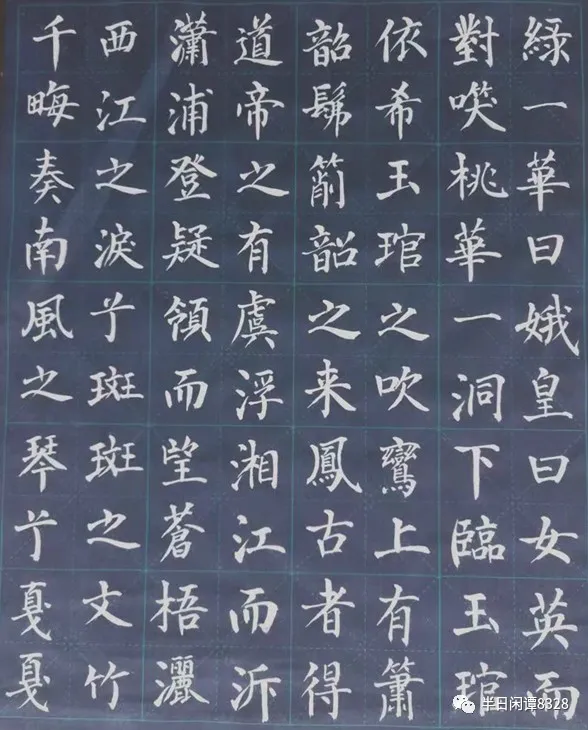 綠一華曰娥皇曰女英而
對噗桃華一洞下臨玉琯
依希玉琯之吹鸞上有簫
韶髴箾韶之来鳳古者得
道帝之有虞浮湘江而泝
瀟浦登疑領而望蒼梧灑
西江之淚兮斑斑之文竹
千晦奏南風之琴兮戛戛
半日闲谭8328